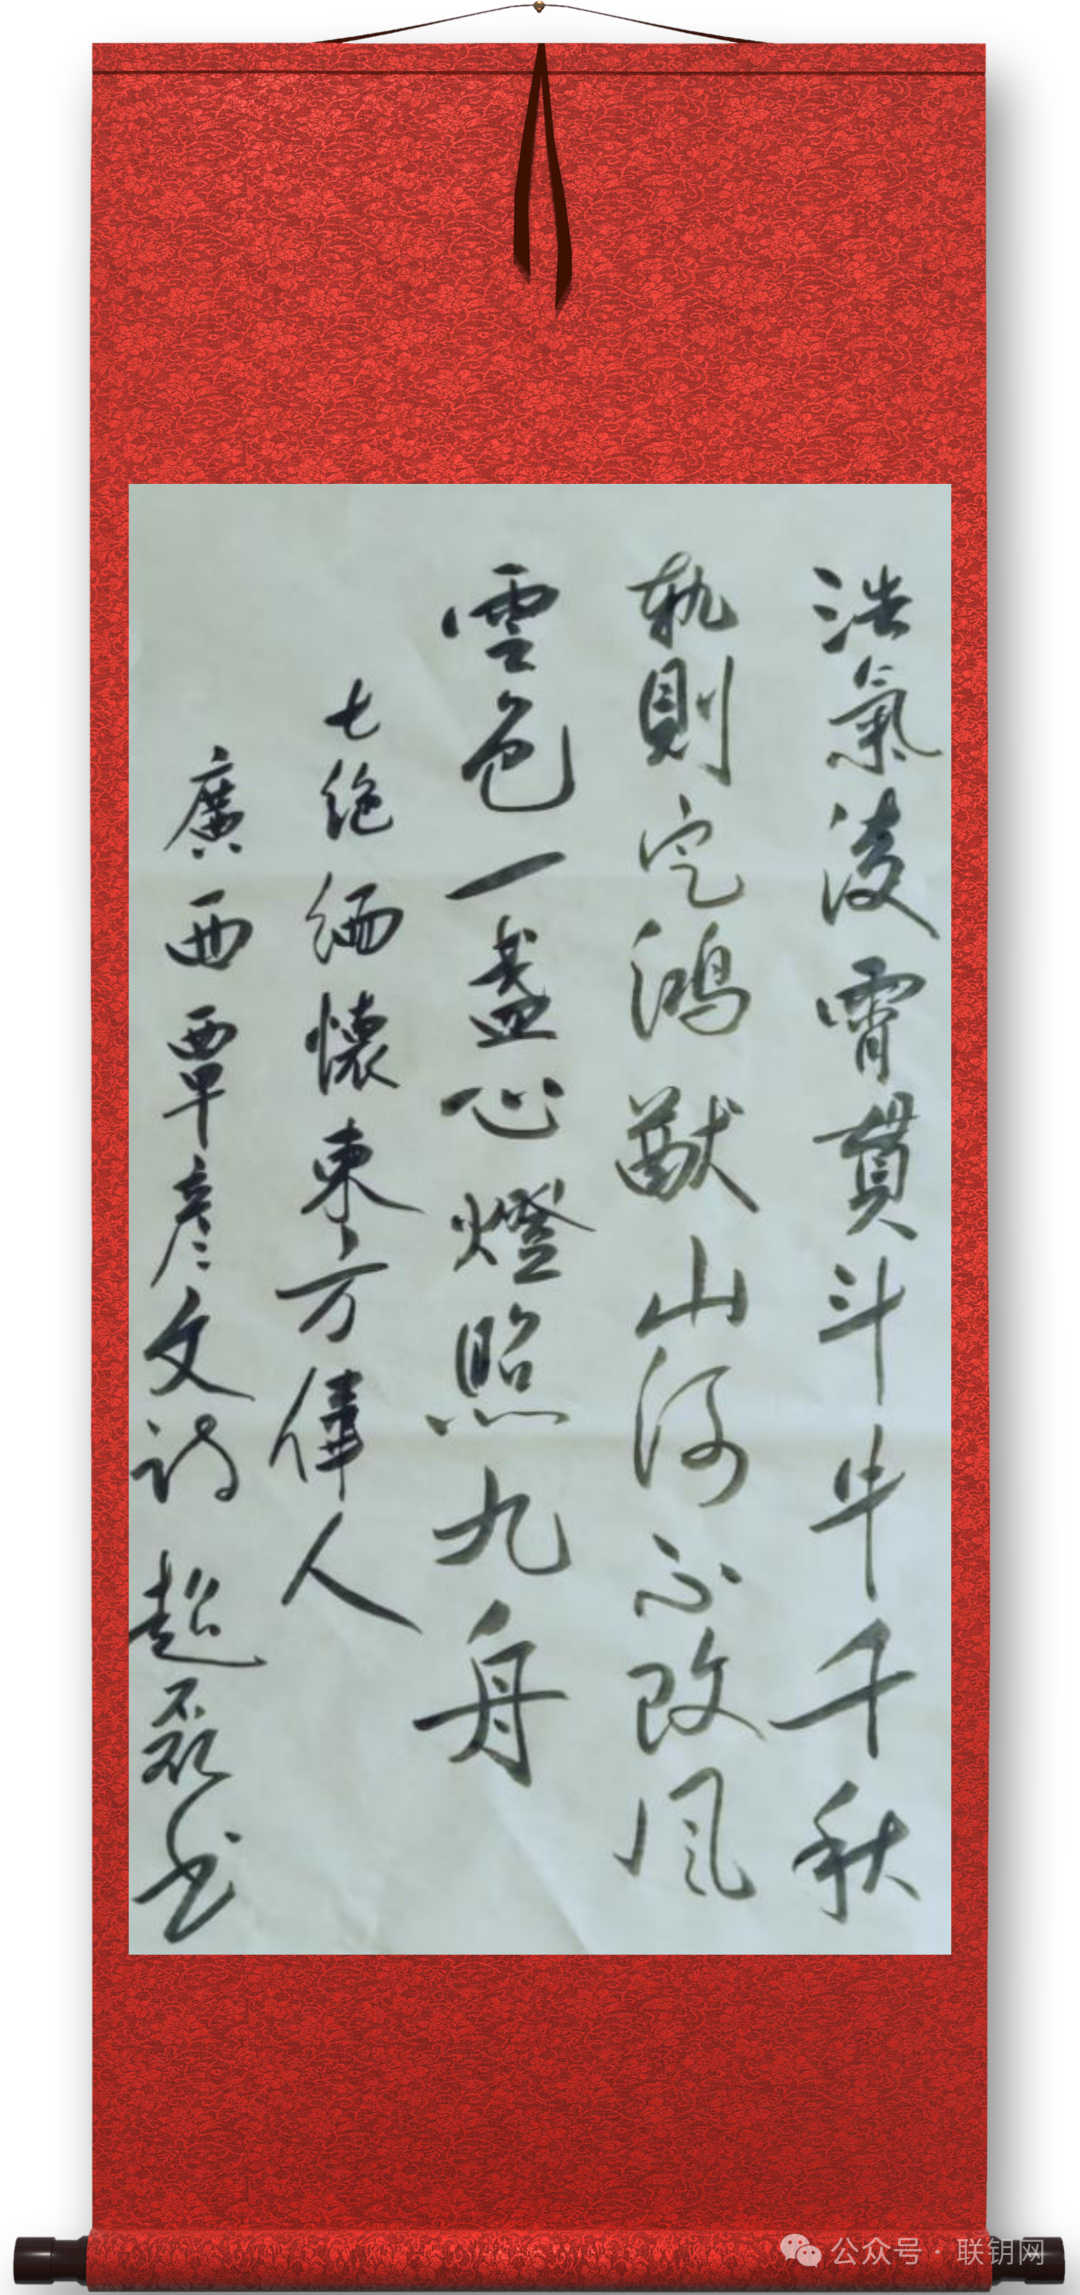 浩氣凌霄貫斗牛千秋
軌則定鴻猷山河不改風
雲色一盞心燈照九舟
七绝缅懷東方偉人
廣西覃彦文诗 超磊书
公众号 · 联钥网